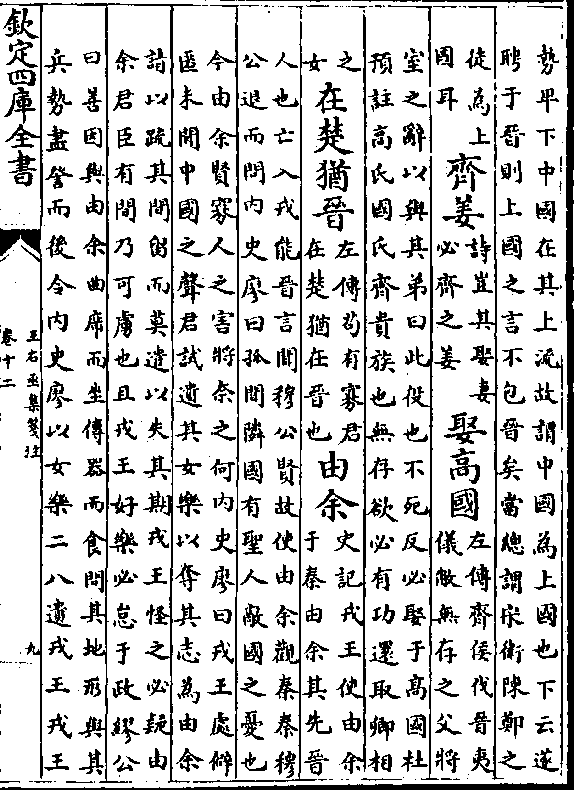 勢卑下中國在其上流故謂中國為上國也下云遂
聘于晉則上國之言不包晉矣當總謂宋衛陳鄭之
徒為上
國耳
齊姜
詩豈其娶妻
必齊之姜
娶高國
左傳齊侯伐晉夷
儀敝無存之父將
室之辭以與其弟曰此役也不死反必娶于高國杜
預註高氏國氏齊貴族也無存欲必有功還取卿相
之
女
在楚猶晉
左傳茍有寡君
在楚猶在晉也
由余
史記戎王使由余
于秦由余其先晉
人也亡入戎能晉言聞穆公賢故使由余觀秦秦穆
公退而問內史廖曰孤聞隣國有聖人敵國之憂也
今由余賢寡人之害將奈之何內史廖曰戎王處僻
匿未聞中國之聲君試遺其女樂以奪其志為由余
請以疏其間留而莫遣以失其期戎王怪之必疑由
余君臣有間乃可虜也且戎王好樂必怠于政繆公
曰善因與由余曲席而坐傳器而食問其地形與其
兵勢盡詧而後令內史廖以女樂二八遺戎王戎王
欽定四庫全書
王右丞集箋注
卷十二
九